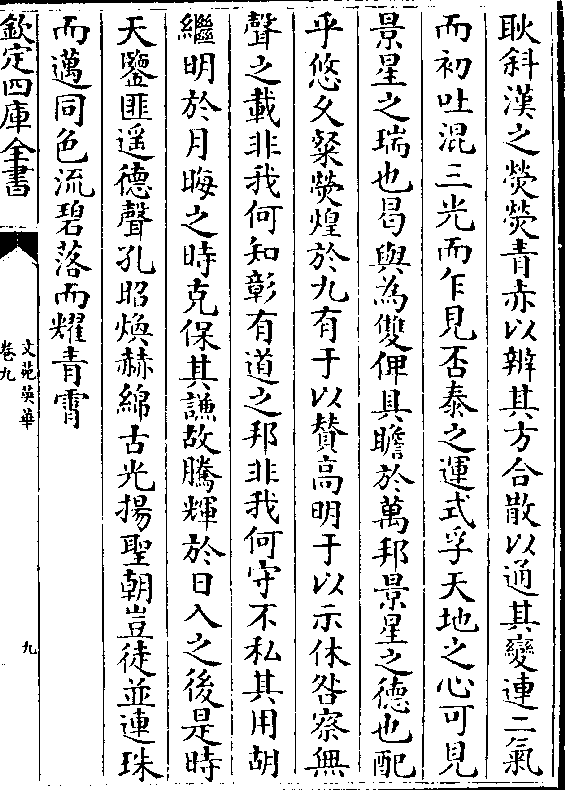 耿斜漢之熒熒青赤以辨其方合散以通其變連二氣
而初吐混三光而乍見否泰之運式孚天地之心可見
景星之瑞也曷與為雙俾具瞻於萬邦景星之德也配
乎悠久粲熒煌於九有于以贊高明于以示休咎察無
聲之載非我何知彰有道之邦非我何守不私其用胡
繼明於月晦之時克保其謙故騰輝於日入之後是時
天鑒匪遥德聲孔昭煥赫綿古光揚聖朝豈徒並連珠
而邁同色流碧落而耀青霄
欽定四庫全書
文苑英華
卷九
九